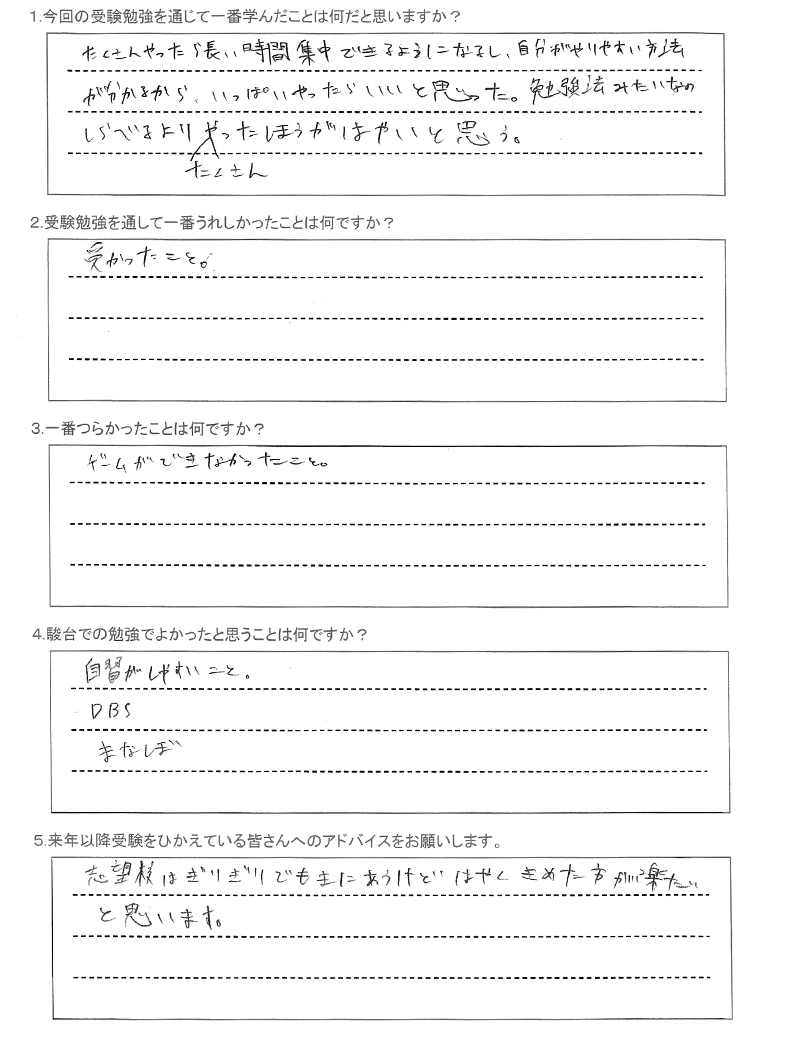 1.今回の受験勉強を通じて一番学んだことは何だと思いますか？
たくさんやったら長い時間集中できるようになるし、自分がやりやすい方法
が分かるから、いっぱいやったらいいと思った。勉強法みたいなの
しらべるよりやったほうがはやいと思う。
たくさん
2.受験勉強を通して一番うれしかったことは何ですか？
受かったこと。
3.一番つらかったことは何ですか？
ゲームができなかったこと。
4.駿台での勉強でよかったと思うことは何ですか？
自習がしやすいこと。
DBS
まなしぼ
5.来年以降受験をひかえている皆さんへのアドバイスをお願いします。
志望校はぎりぎりでもまにあうけどはやくきめた方が楽だ
と思います。